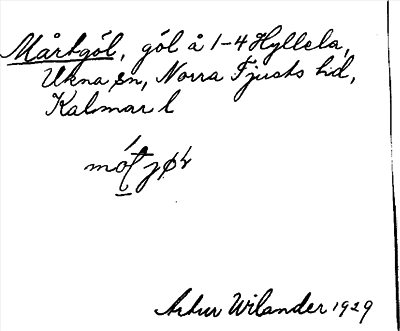 Mårtgöl, göl å 1-4 Hyllela,
Ukna sn, Norra Tjusts hd,
Kalmar l
Artur Wilander 1929